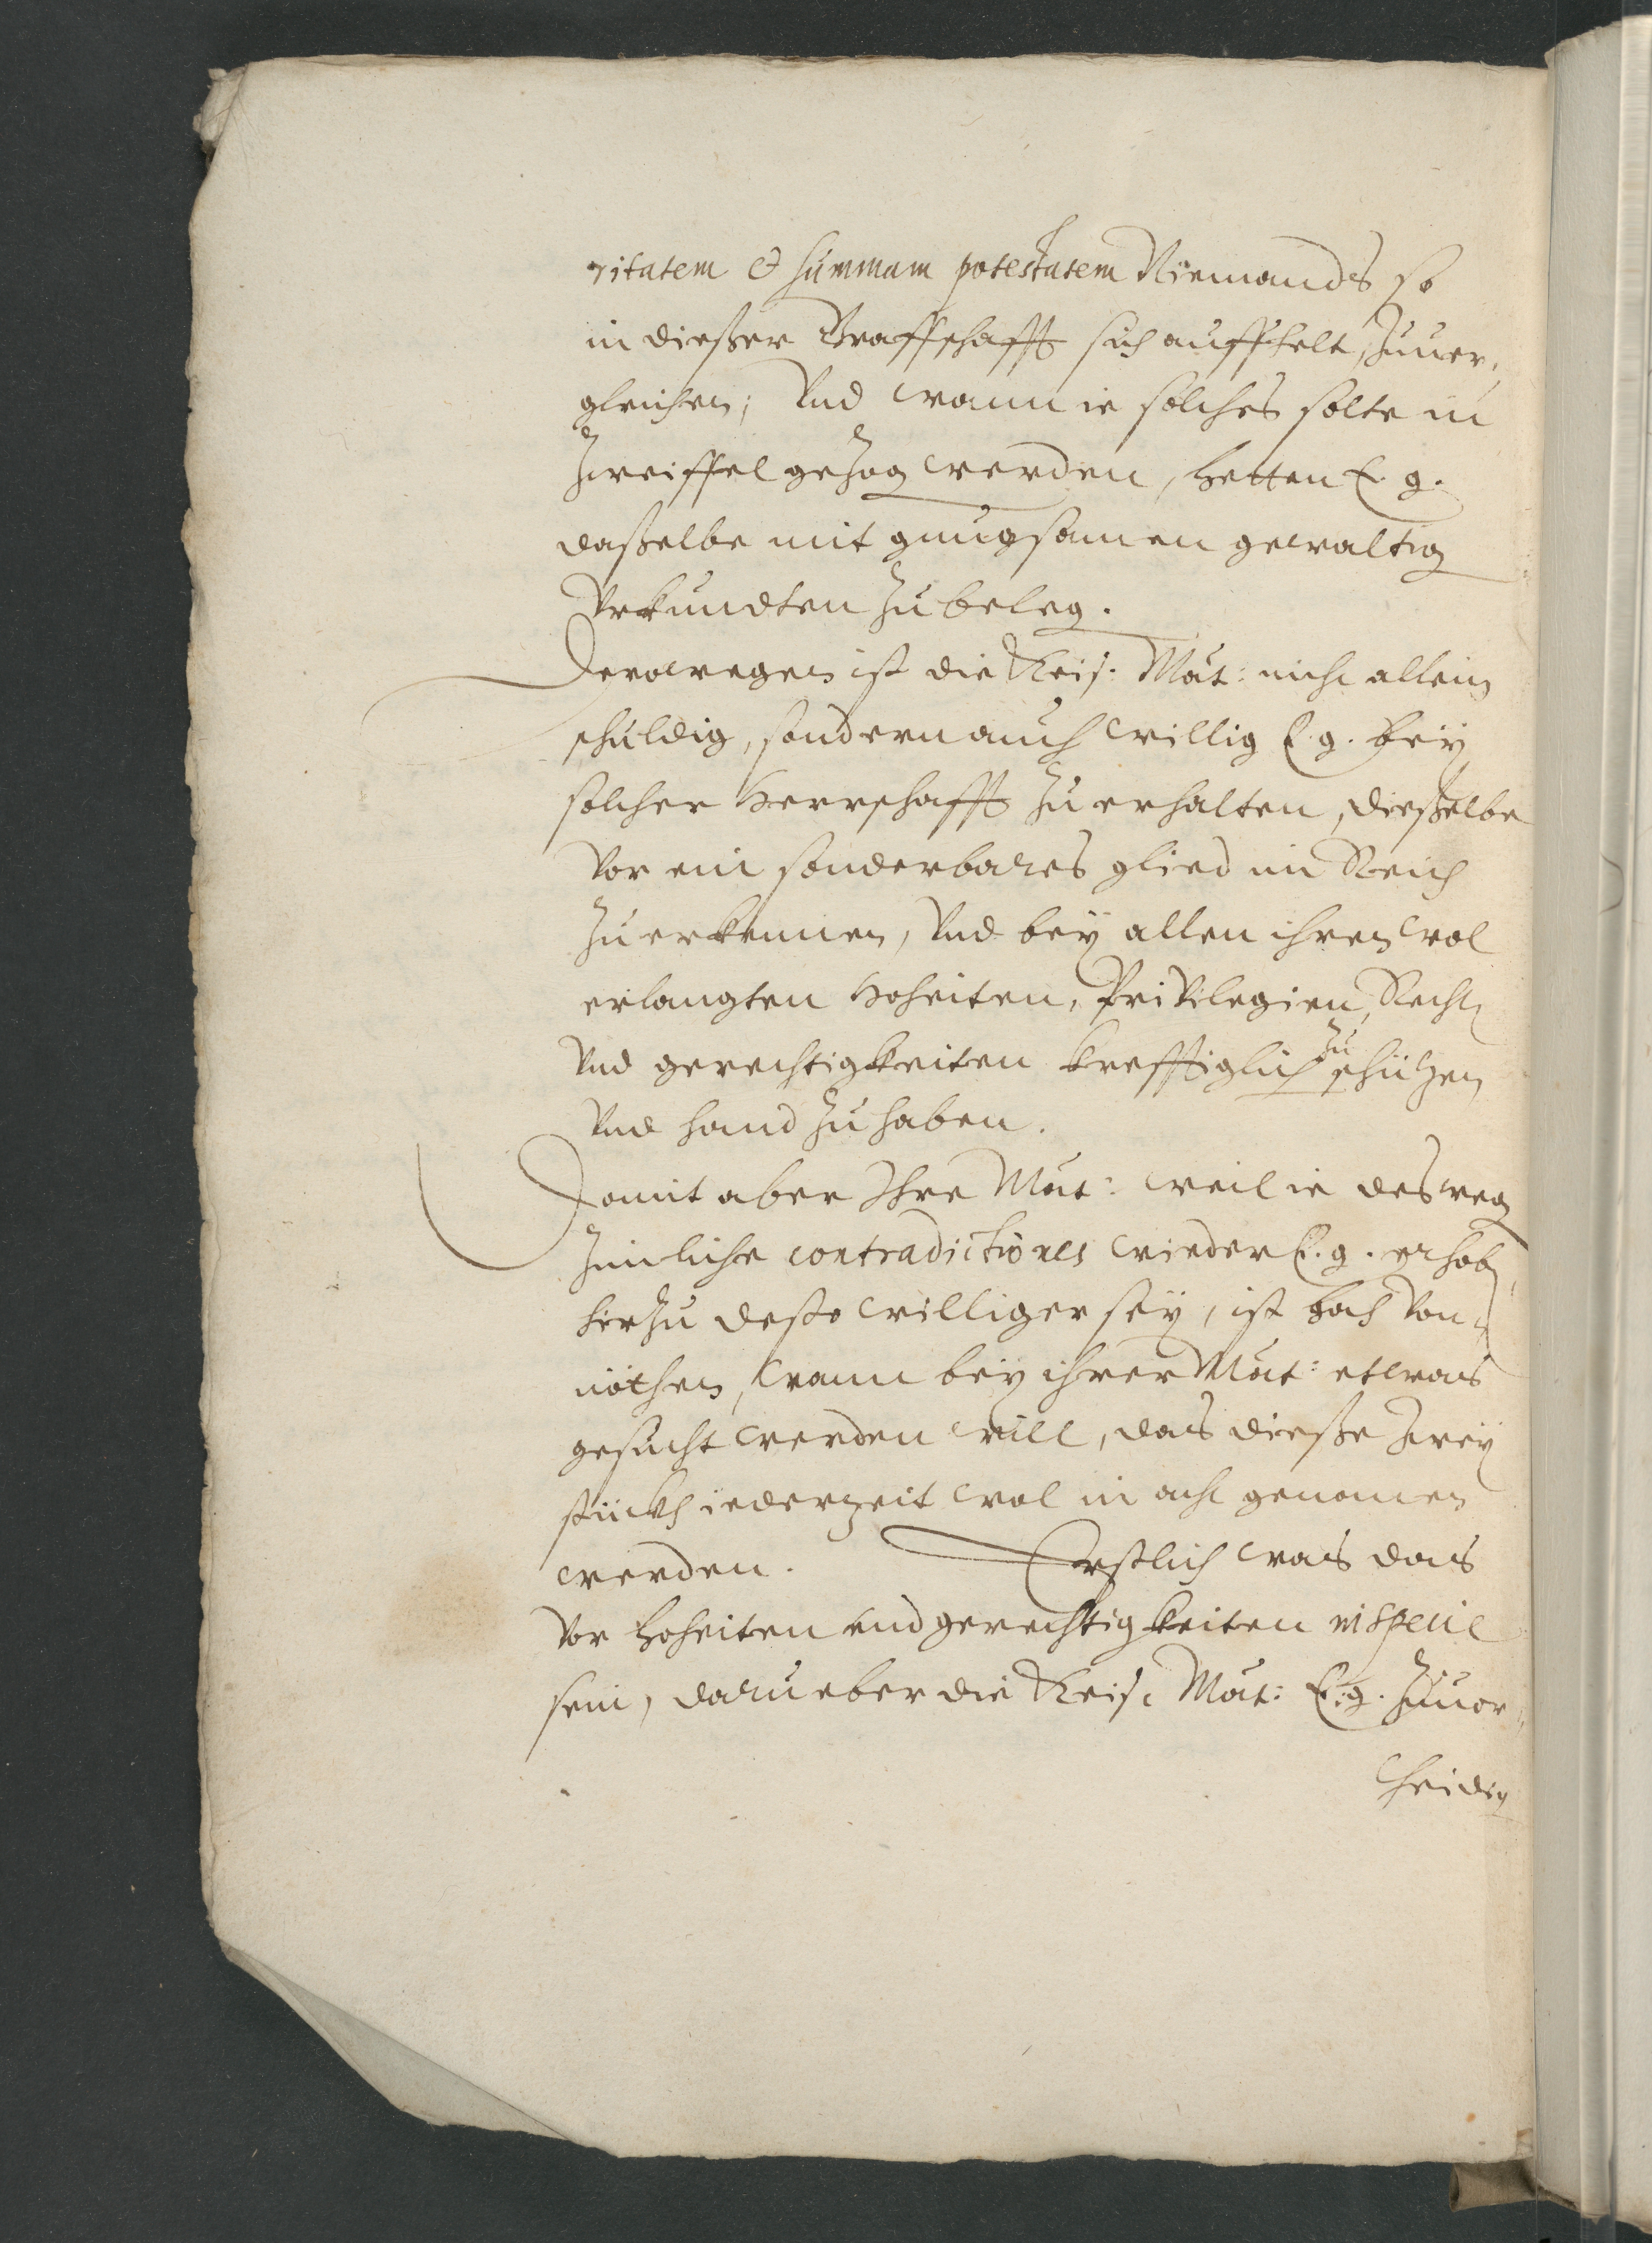 ritatem & summam potestatem Niemands so
in dießer Graffschafft sich auffhelt, zuuer,
gleichen; Vnd wann ie solches solte in
Zweiffel gezog werden, hetten E. g.
daßelbe mit gnugsamen gewaltig
Vrkundten zu beleg.
Derowegen ist die Keis: Mat: nicht allein
schuldig, sondern auch willig E. g. bey
solcher Herrschafft zu erhalten, dießelbe
vor ein sonderbares glied im Reich
zu erkennen, Vnd bey allen ihren wol
erlangten Hoheiten, Privilegien, Recht
Vnd gerechtigkeiten krefftiglich zu schützen
Vnd hand zu haben.
Damit aber Ihre Mat: weil ie desweg
zimliche contradictiones wieder E. g. erhob
hierzu desto williger sey, ist hoch von=
nöthen, wann bey ihrer Mat: etwas
gesucht werden will, das dieße zwey
stückh iederzeit wol in acht genomen
werden. Erstlich was das
vor Hoheiten und gerechtigkeiten in specie
sein, darueber die Keis: Mat: E. g. zuuor=
theidig